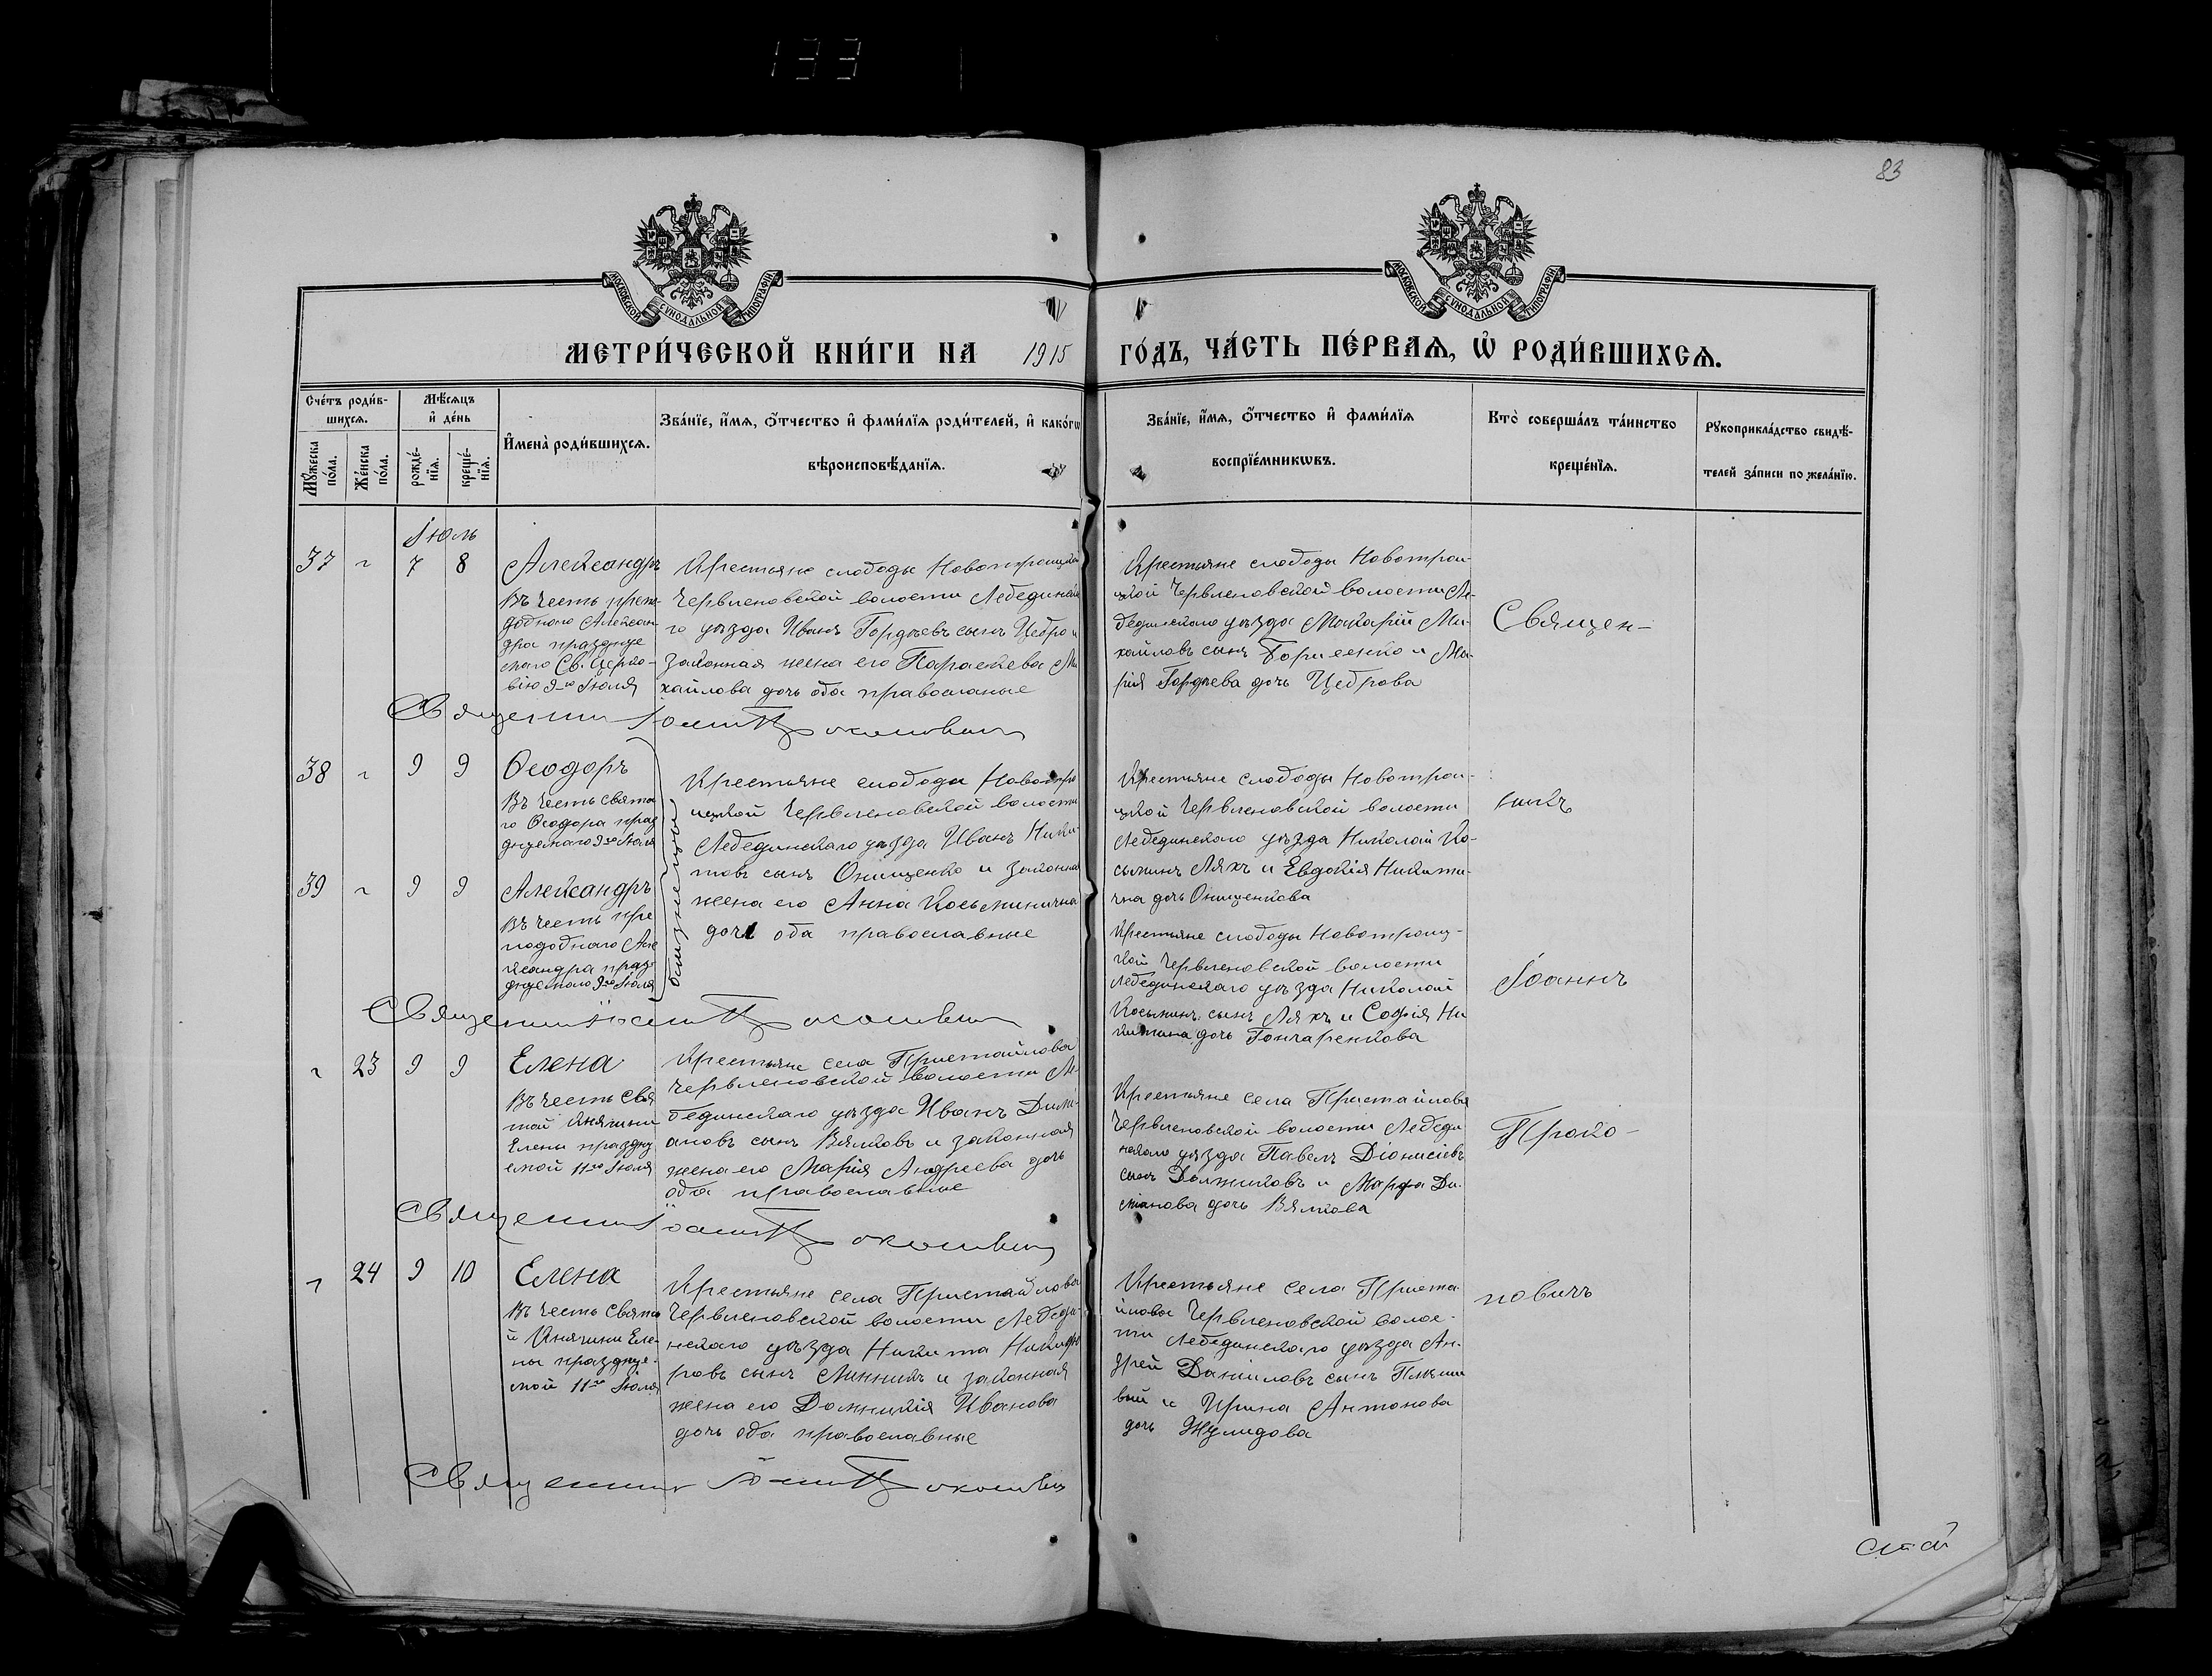 133
83
МОСКОВСКОЙ СѴНОДАЛЬНОЙ ТИПОГРАФІИ
МОСКОВСКОЙ СѴНОДАЛЬНОЙ ТИПОГРАФІИ
МЕТРИ́ЧЕСКОЙ КНИ́ГИ НА 1915 ГО́ДЪ, ЧА́СТЬ ПЕ́РВАѦ, Ѡ҆ РОДИ́ВШИХСѦ.
Сче́тъ роди́в-
шихсѧ.
Мѹ́жеска
по́ла.
Же́нска
по́ла.
Мѣ́сѧцъ
и҆ де́нь
рожде́-
нїѧ.
креще́-
нїѧ.
И҆мена̀ роди́вшихсѧ.
Зва́нїе, и҆́мѧ, ѻ҆́тчество и҆ фами́лїѧ роди́телей, и҆ како́гѡ
вѣроисповѣ́данїѧ.
Зва́нїе, и҆́мѧ, ѻ҆́тчество и҆ фами́лїѧ
воспрїе́мникѡвъ.
Кто̀ соверша́лъ та́инство
креще́нїѧ.
Рѹкоприкла́дство свидѣ́-
телей за́писи по жела́нїю.
Іюль
37 " 7 8
Александръ
Въ честь препо-
добнаго Алексан-
дра праздуе
маго Св. Церко-
вію 9го Іюля
Крестьяне слободы Новотроицкой
Червленовской волости Лебединска
го уѣзда Иванъ Гордѣевъ сынъ Цебро и
законная жена его Параскева Ми
хайлова дочь оба православные
Крестьяне слободы Новотрои-
цкой Червленовской волости Ле-
бединскаго уѣзда Макарій Ми-
хайловъ сынъ Борисенко и Ма-
рія Гордѣева дочь Цеброва
Священ-
Священникъ Іоаннъ Прокоповичъ
38 " 9 9
Ѳеодоръ
Въ честь свята
го Ѳеодора праз
днуемаго 9го Іюля
39 " 9 9
Александръ
Въ честь пре
подобнаго Але
ксандра праз-
днуемаго 9го Іюля
близнецы
Крестьяне слободы Новотро
ицкой Червленовской волости
Лебединскаго уѣзда Иванъ Ники-
товъ сынъ Онищенко и законна
жена его Анна Косьминична
дочь оба православные
Крестьяне слободы Новотрои-
цкой Червленовской волости
Лебединскаго уѣзда Николай Ко-
сьминъ Ляхъ и Евдокія Никити-
чна дочь Онищенкова
Крестьяне слободы Новотроиц-
кой Червленовской волости
Лебединскаго уѣзда Николай
Косьминъ сынъ Ляхъ и Софія Ни
китина дочь Гончаренкова
никъ
Іоаннъ
Священникъ Іоаннъ Прокоповичъ
" 23 9 9
Елена
Въ честь Свя
той Княгини
Елены праздну
емой 11го Іюля
Крестьяне села Пристайлова
Червленовской волости Ле-
бединскаго уѣзда Иванъ Дими-
ановъ сынъ Вялковъ и законная
жена его Марія Андреева дочь
оба православные
Крестьяне села Пристайлова
Червленовской волости Лебеди
нскаго уѣзда Павелъ Діонисіевъ
сынъ Должиковъ и Марфа Ди-
міанова дочь Вялкова
Проко-
Священникъ Іоаннъ Прокоповичъ
" 24 9 10
Елена
Въ честь Свято
й Княгини Еле-
ны празднуе-
мой 11го Іюля
Крестьяне села Пристайлова
Червленовской волости Лебеди-
нскаго уѣзда Никита Никифо
ровъ сынъ Линникъ и законная
жена его Домникія Иванова
дочь оба православные
Крестьяне села Приста
йлова Червленовской волос-
ти Лебединскаго уѣзда Ан-
дрей Даніиловъ сынъ
и Ирина Антонова
дочь Жулидова
повичъ
Священникъ Іоаннъ Прокоповичъ